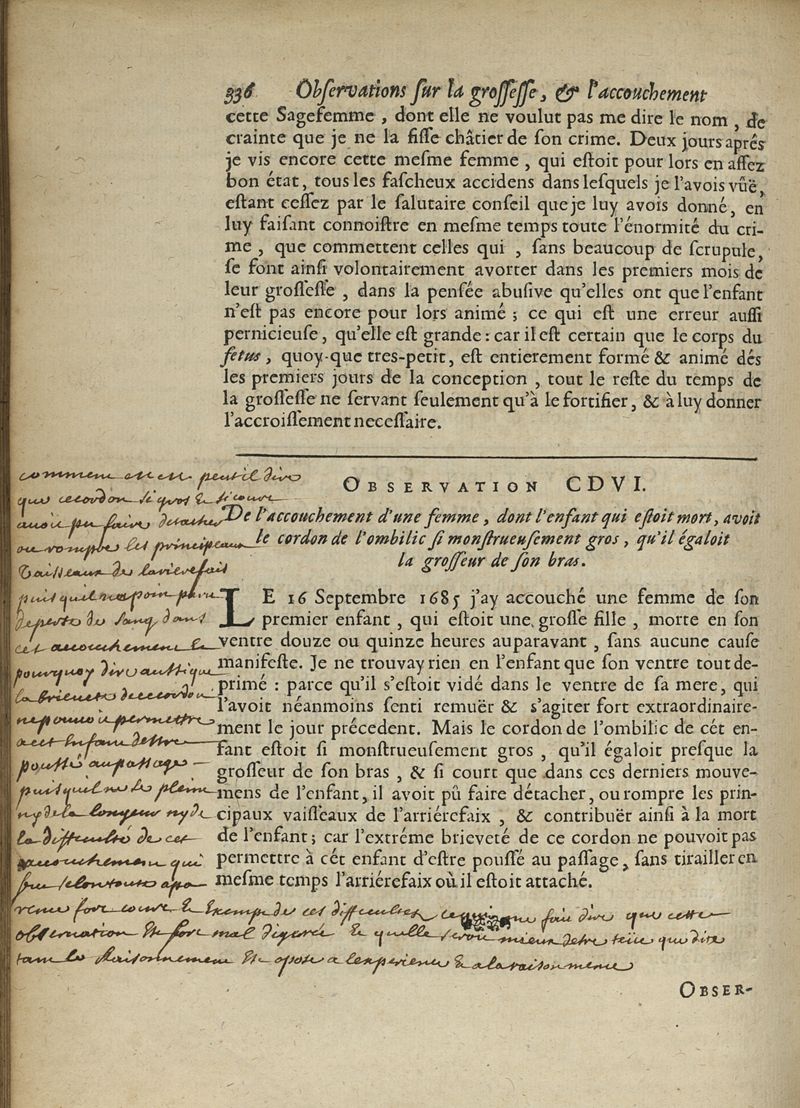 336 Obſervations ſur la groſſeſſe, & l'accouchement
cette Sagefemme, dont elle ne voulut pas me dire le nom, de
crainte que je ne la fiſſe châtier de ſon crime. Deux jours aprés
je vis encore cette meſme femme, qui eſtoit pour lors en aſſez
bon état, tous les faſcheux accidens dans leſquels je l'avois vûë,
eſtant ceſſez par le ſalutaire conſeil que je luy avois donné, en
luy faiſant connoiſtre en meſme temps toute l'énormité du cri-
me, que commettent celles qui, ſans beaucoup de ſcrupule,
ſe font ainſi volontairement avorter dans les premiers mois de
leur groſſeſſe, dans la penſée abuſive qu'elles ont que l'enfant
n'eſt pas encore pour lors animé; ce qui eſt une erreur auſſi
pernicieuſe, qu'elle eſt grande: car il eſt certain que le corps du
fetus, quoy-que tres-petit, eſt entierement formé & animé dés
les premiers jours de la conception, tout le reſte du temps de
la groſſeſſe ne ſervant ſeulement qu'à le fortifier, & à luy donner
l'accroiſſement neceſſaire.
OBSERVATION CDVI.
De l'accouchement d'une femme, dont l'enfant qui eſtoit mort, avoit
le cordon de l'ombilic ſi monſtrueuſement gros, qu'il égaloit
la groſſeur de ſon bras.
LE 16 Septembre 1685 j'ay accouché une femme de ſon
premier enfant, qui eſtoit une groſſe fille, morte en ſon
ventre douze ou quinze heures auparavant, ſans aucune cauſe
manifeſte. Je ne trouvay rien en l'enfant que ſon ventre tout de-
primé: parce qu'il s'eſtoit vidé dans le ventre de ſa mere, qui
l'avoit néanmoins ſenti remuër & s'agiter fort extraordinaire-
ment le jour précedent. Mais le cordon de l'ombilic de cét en-
fant eſtoit ſi monſtrueuſement gros, qu'il égaloit preſque la
groſſeur de ſon bras, & ſi court que dans ces derniers mouve-
mens de l'enfant, il avoit pû faire détacher, ou rompre les prin-
cipaux vaiſſeaux de l'arriérefaix, & contribuër ainſi à la mort
de l'enfant; car l'extréme brieveté de ce cordon ne pouvoit pas
permettre à cét enfant d'eſtre pouſſé au paſſage, ſans tirailler en
meſme temps l'arriérefaix où il eſtoit attaché.
comment peut il dire
que ce cordon si gros & si court
pu faire detacher
ou rompre les principeaux
vaisseaux de larierefais
puis quil point paru
de perte de sang dans
cet accouchement &
pourquoy dire aussi que
la brieveté de ce cordon
ne pouvoit permettre
a cet enfant dettre
poussé au passage
la difficulté de cet
accouchement qui
fort mal digeree & quelle seroit mieux
OBSER-